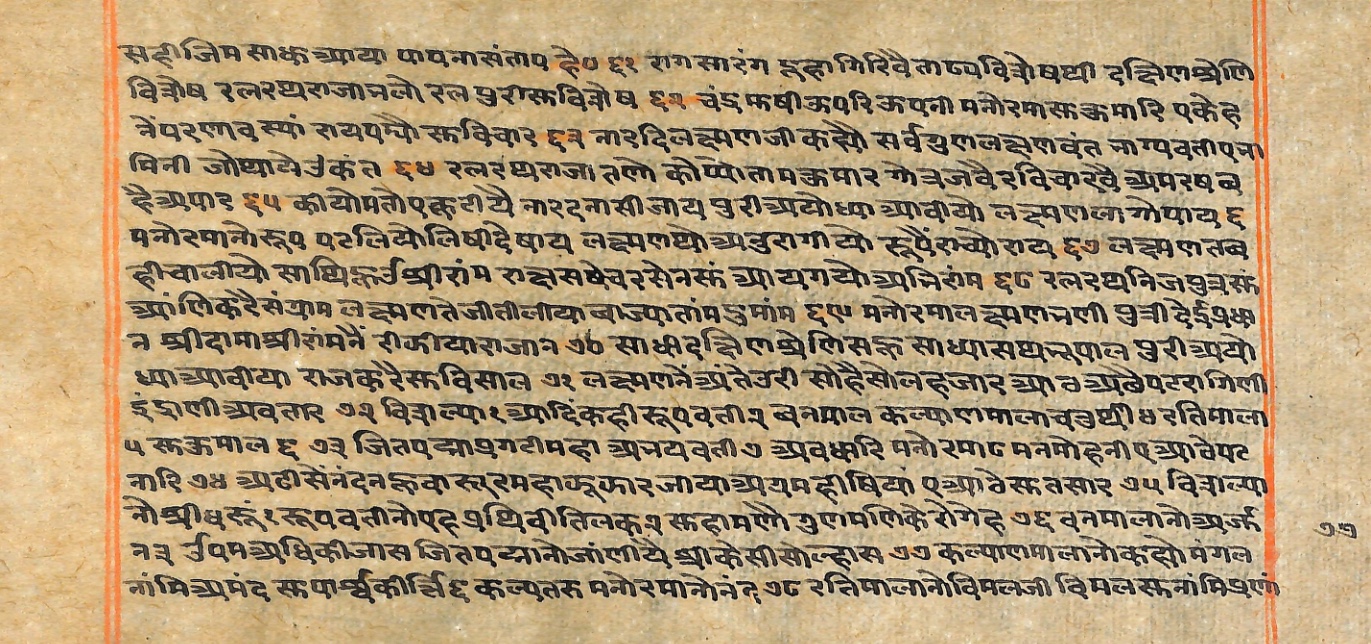 सही जिम साकं आया पापनासंताप है० ६१ राग सारंग दूहा गिरिवैताढ्यविशेषथी दक्षिणश्रेणि
विशेष रत्नरथराजाभलो रत्नपुरीसुविशेष ६२ चंद्रमुषीऊपरिऊपनी मनोरमासुकुमारि एकेह
नेंपरणावस्यां रायपयंपै सुविचार ६३ नारदिलक्ष्मणजी कह्यो सर्वगुणलक्षणवंत भाग्यवतीएभा
मिनी जोथायेउकंत ६४ रत्नरथराजा तणो कोप्पोतामकुमार गोत्रजवैरविचारवै अमरषव
हैअपार ६५ कीयोमतोएकुटीयै नारदनासीजाय पुरीअयोध्या आवीयो लक्ष्मणलागोपाय ६
मनोरमानोरूप पटलियोलिषीदेषाय लक्ष्मणथयो अनुरागीयो रूपैंराच्यो राय ६७ लक्ष्मण तब
हीचालीयो साथिहुउंश्रीरांम राक्षसषेचरसेनसुं आयगयोअभिरांम ६८ रत्नरथनिजपुत्रसुं
आंणिकरैसंग्राम लक्ष्मणतेजीतीलीया वाज्यातांमदुमांम ६९ मनोरमालक्ष्मणभणी पुत्रीदेईप्रधा
न श्रीदामाश्रीरांमनैं रीझीयाराजान ७० साधीदक्षिणश्रेणिसहु साध्यासघलाभूपाल पुरीअयो
ध्याआवीया राजकरैसुविसाल ७१ लक्ष्मणनें अंतेउरी सोहैसोलहजार आठअछैपटरागिणी
इंद्राणीअवतार ७२ विशल्या१ आदिंकही रूपवती२ वनमाल कल्याणमालाचउथी ४ रतिमाला
५ सुकुमाल ६ ७३ जितपद्माप्रगटीमहा अभयवती ७ अवधारि मनोरमा८ मनमोहनी एआठेपट
नारि ७४ अढीसेंनंदनहुवा सूरमहाझूझार जायाअग्रमहीषियां एआठेसुतसार ७५ विशल्या
नोश्रीधरूं१ रूपवतीनोएह प्रथिवीतिलक२ सुहामणो गुणमणिकेरोगेह ७६ वनमालानोअर्जु
न३ उपमअधिकीजास जितपद्मानोजांणीयै श्रीकेसीसोल्हास ७७ कल्याणमालानोकह्यो मंगल
नांमिअमंद सुपार्श्वकीर्त्ति६ कल्पतरु मनोरमानोनंद ७८ रतिमालानोविमलजी विमलसुनांमिप्रणां
७७